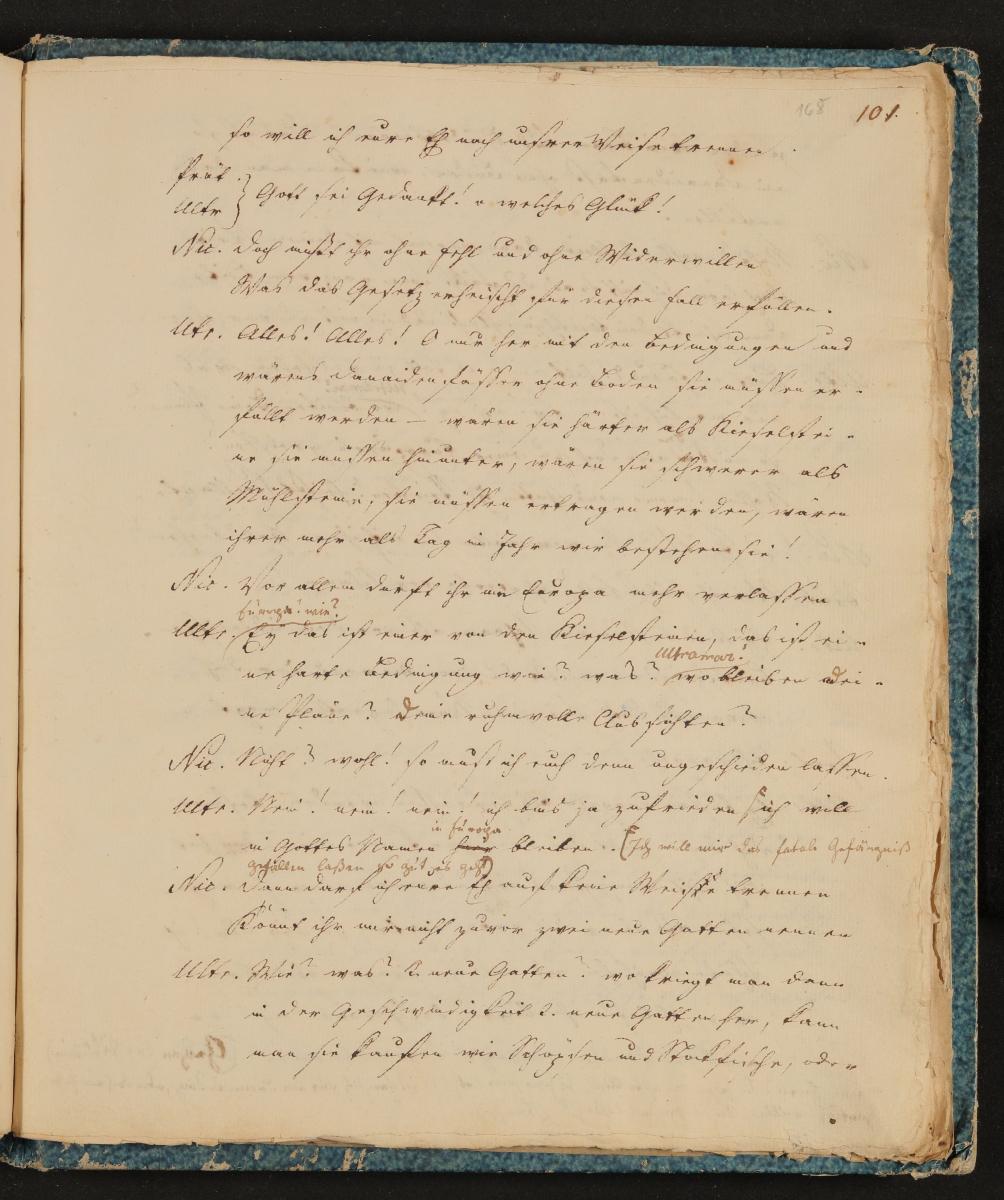 168 101.
so will ich eure Eh nach unsrer Weise trennen
Prät.
Gott sei Gedankt! o welches Glück!
Ultr
Nic. Doch müßt ihr ohne Fehl und ohne Widerwillen
Was das Gesetz erheischt für diesen Fall erfüllen.
Ultr. Alles! Alles! O nur her mit den Bedingungen und
wärens Danaidenfässer ohne Boden sie müssen er-
füllt werden – wären sie härter als Kieselstei-
ne sie müssen hinunter, wären sie schwerer als
Mühlsteine, sie müssen ertragen werden, wären
ihrer mehr als Tag im Jahr wir bestehen sie!
Nic. Vor allem dürft ihr nie Europa mehr verlassen
Europa! wie?
Ultr. Ey das ist einer von den Kieselsteinen, das ist ei-
Ultramar!
ne harte Bedingung wie? was? wo bleiben dei-
ne Pläne? deine ruhmvolle Aussichten?
Nic. Nicht? wohl! so muß ich euch denn ungeschieden lassen.
Ultr. Nein! nein! nein! ich bins ja zufrieden ich will
in Europa
in Gottes Namen hier bleiben. (Ich will mir das fatale Gefängniß
gefallen laßen so gut es geht)
Nic. Dann darf ich eure Eh auf keine Weise trennen
Könnt ihr mir nicht zuvor zwei neue Gatten nennen
Ultr. Wie? was? 2. neue Gatten? wo kriegt man denn
in der Geschwindigkeit 2. neue Gatten her, kann
man sie kaufen wie Schöpsen und Stokfische, oder